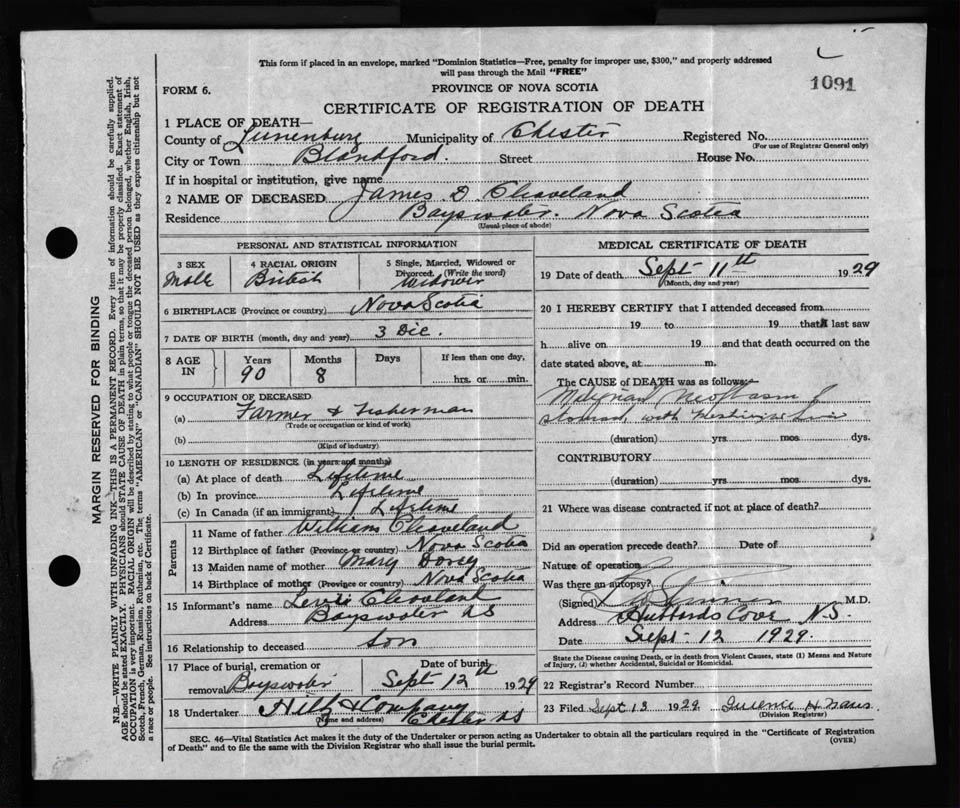 This form if placed in an envelope, marked "Dominion Statistics—Free, penalty for improper use, $300," and properly addressed
will pass through the Mail "FREE"
1091
FORM 6.
PROVINCE OF NOVA SCOTIA
CERTIFICATE OF REGISTRATION OF DEATH
1 PLACE OF DEATH—
County of Lunenburg Municipality of Chester Registered No.
(For use of Registrar General only)
City or Town Blandford. Street House No.
If in hospital or institution, give name
2 NAME OF DECEASED James D Cleaveland
Residence Bayswater. Nova Scotia
(Usual place of abode)
PERSONAL AND STATISTICAL INFORMATION
3 SEX Male
4 RACIAL ORIGIN British
5 Single, Married, Widowed or
Divorced. (Write the word)
Widower
6 BIRTHPLACE (Province or country) Nova Scotia
7 DATE OF BIRTH (month, day and year) 3 Dec.
8 AGE IN Years 90 Months 8 Days If less than one day,
hrs. or min.
9 OCCUPATION OF DECEASED
(a) Farmer & Fisherman
(Trade or occupation or kind of work)
(b)
(Kind of industry)
10 LENGTH OF RESIDENCE (in years and months)
(a) At place of death Lifetime
(b) In province Lifetime
(c) In Canada (if an immigrant) Lifetime
Parents
11 Name of father William Cleaveland
12 Birthplace of father (Province or country) Nova Scotia
13 Maiden name of mother Mary Dorsey
14 Birthplace of mother (Province or country) Nova Scotia
15 Informant's name Levi Cleaveland
Address Bayswater NS
16 Relationship to deceased son
17 Place of burial, cremation or Date of burial
removal Bayswater Sept 12th 1929
18 Undertaker & Company
(Name and address) Chester NS
MEDICAL CERTIFICATE OF DEATH
19 Date of death Sept 11th 1929
(Month, day and year)
20 I HEREBY CERTIFY that I attended deceased from
19 to 19 that I last saw
h alive on 19 and that death occurred on the
date stated above, at m.
The CAUSE of DEATH was as follows:
Malignant Neoplasm of
stomach, with
(duration) yrs mos dys.
CONTRIBUTORY
(duration) yrs mos dys.
21 Where was disease contracted if not at place of death?
Did an operation precede death? Date of
Nature of operation
Was there an autopsy?
(Signed) M.D.
Address Hubbards Cove N.S.
Date Sept 12 1929.
State the Disease causing Death, or in death from Violent Causes, state (1) Means and Nature
of Injury, (2) whether Accidental, Suicidal or Homicidal.
22 Registrar's Record Number
23 Filed Sept 13 1929
(Division Registrar)
SEC. 46—Vital Statistics Act makes it the duty of the Undertaker or person acting as Undertaker to obtain all the particulars required in the "Certificate of Registration
of Death" and to file the same with the Division Registrar who shall issue the burial permit.
(OVER)
MARGIN RESERVED FOR BINDING
N.B.—WRITE PLAINLY WITH UNFADING INK—THIS IS A PERMANENT RECORD. Every item of information should be carefully supplied.
AGE should be stated EXACTLY. PHYSICIANS should STATE CAUSE OF DEATH in plain terms, so that it may be properly classified. Exact statement of
OCCUPATION is very important. RACIAL ORIGIN will be described by stating to what people or tongue the deceased person belonged, whether English, Irish,
Scotch, French, German, Russian, Ruthenian, etc. The terms "AMERICAN" or "CANADIAN" SHOULD NOT BE USED as they express citizenship but not
a race or people. See instructions on back of Certificate.